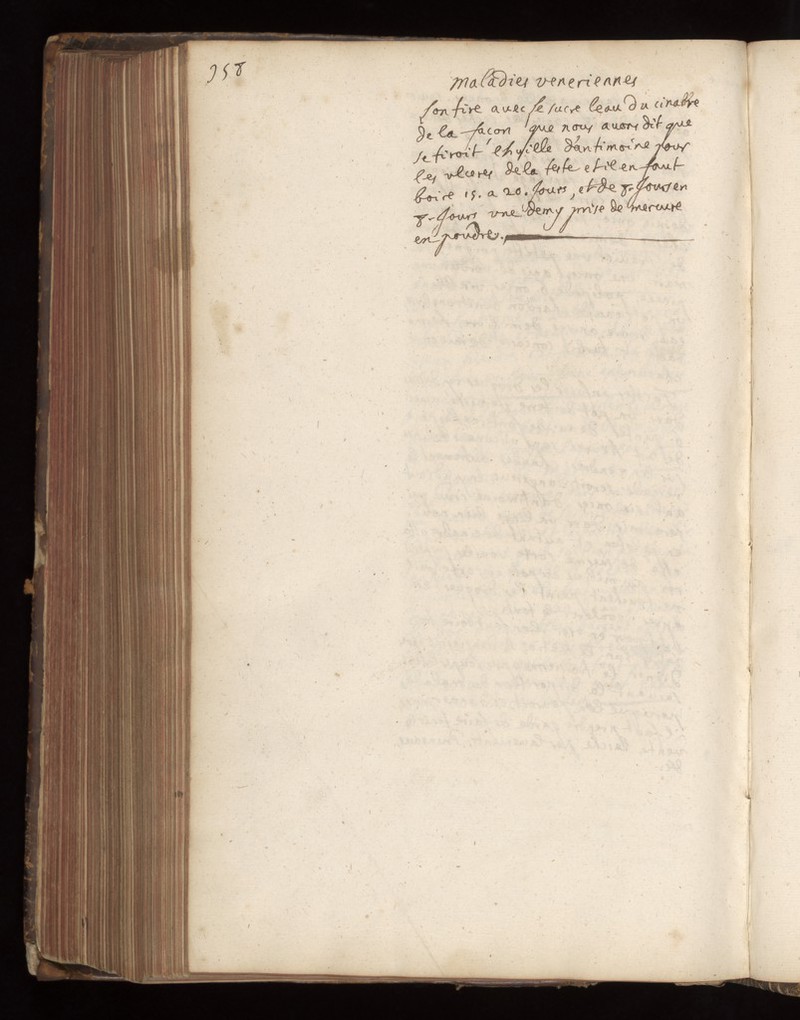 358
maladies veneriennes
l'on tire avec le sucre leau du cinabre
de la façon que nous avons dit que
se tiroit l'huille d'antimoine pour
les vlceres de la teste et il en faut
boire 15. a 20. Jours, et de 8. Jours en
8. Jours vne demy prise de mercure
en poudre.